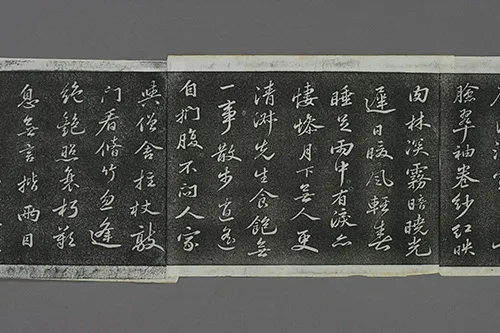 臉翠袖卷紗紅映
肉林深霧暗曉光
遲日暖風輕春
睡足雨中有淚亦
悽慘月下無人更
清淑先生食飽無
一事散步逍遙
自捫腹不問人家
與僧舍拄杖敲
門看脩竹忽逢
絶艷照衰朽歎
息無言揩兩目